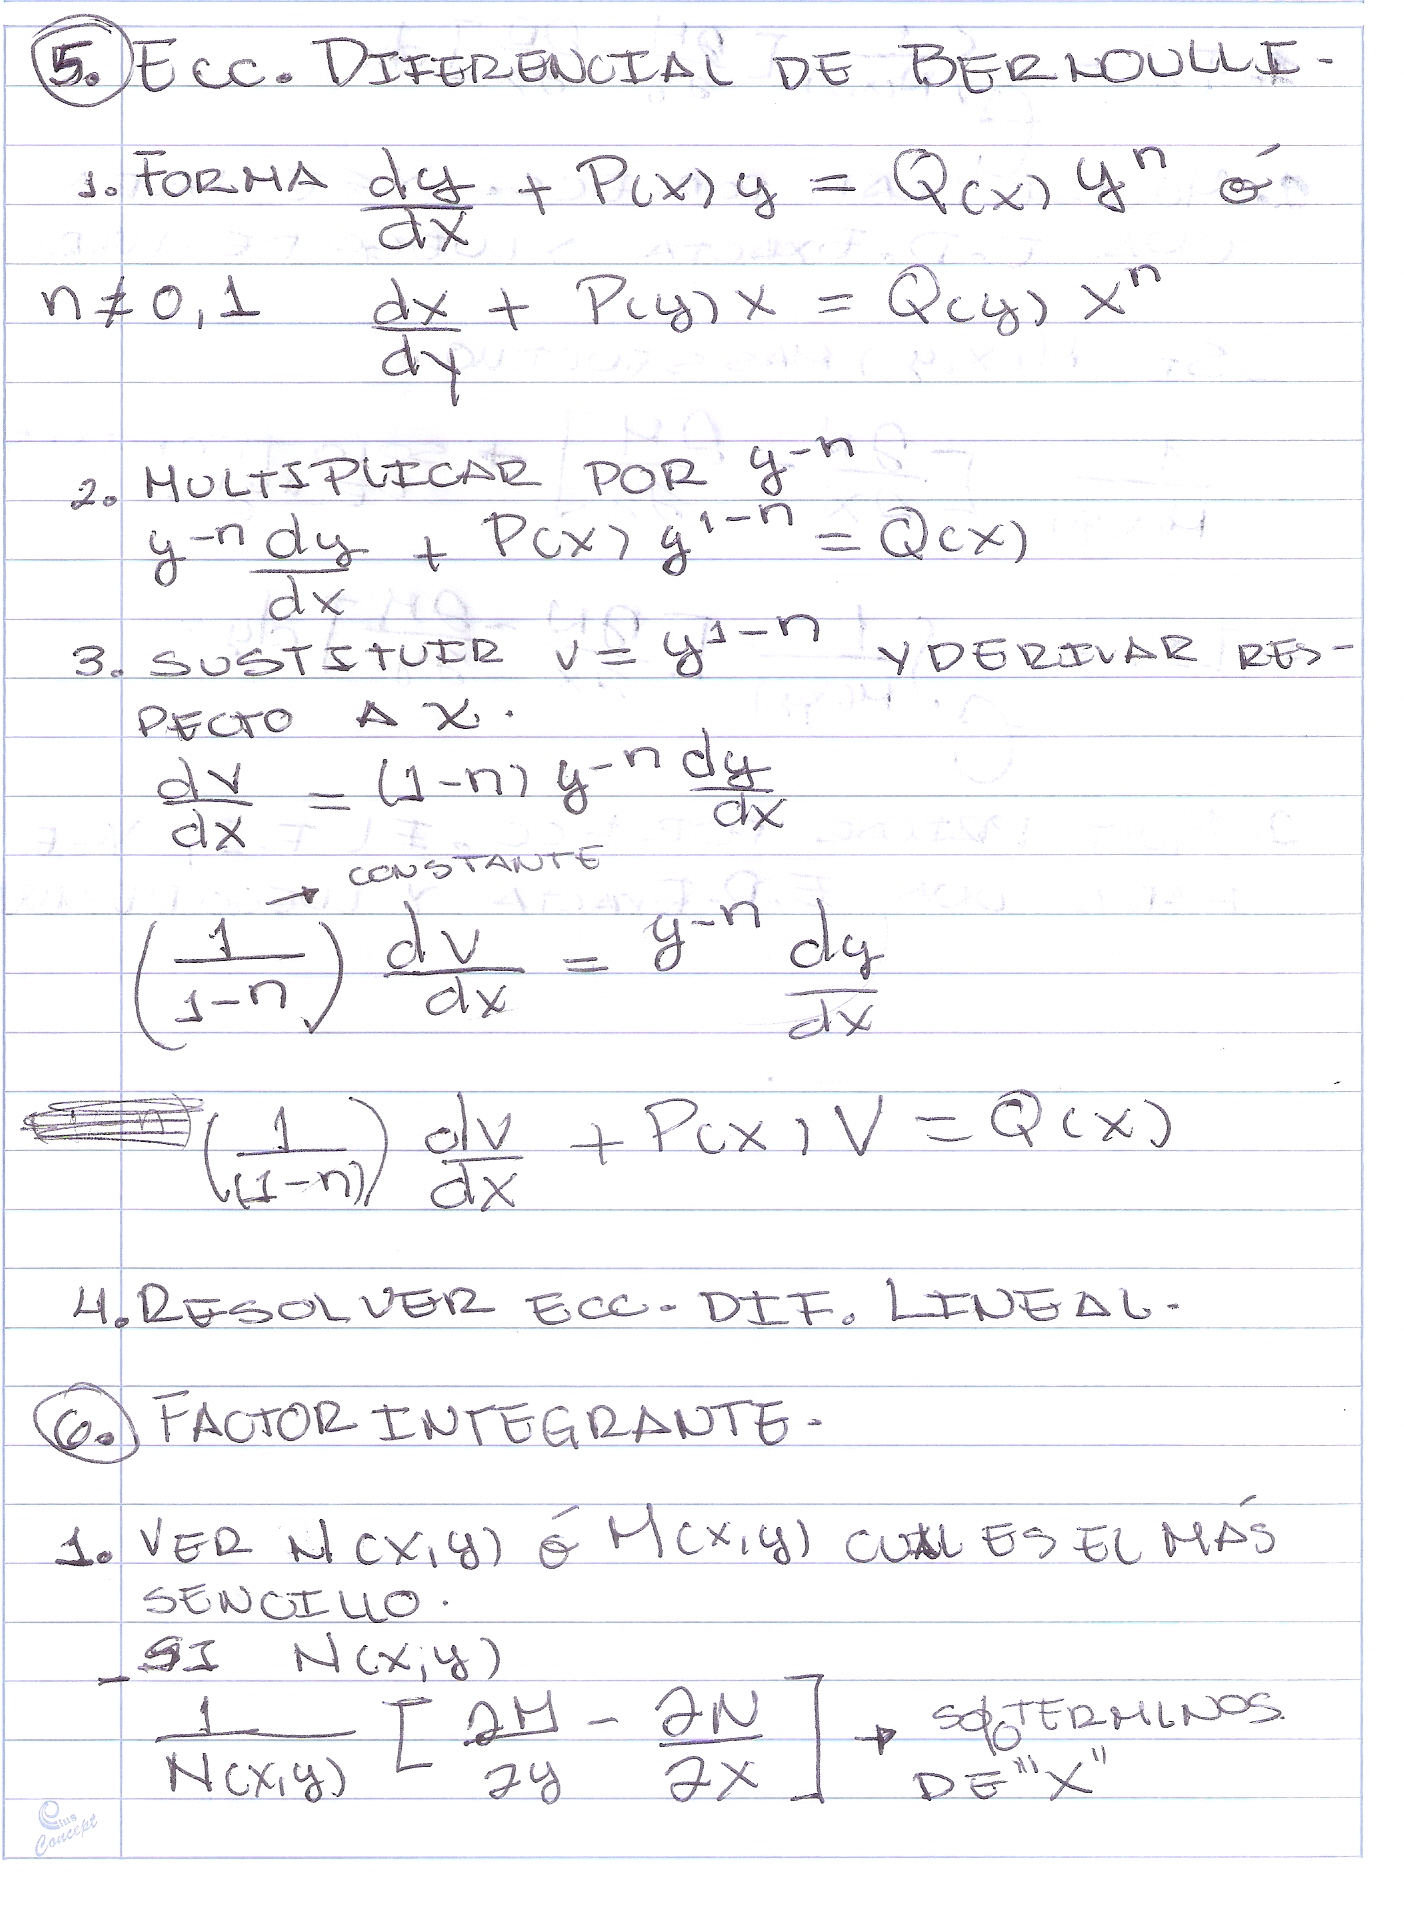 5. ECC. DIFERENCIAL DE BERNOULLI.
1. FORMA dy/dx + P(x) y = Q(x) yⁿ ó
n≠0,1 dx/dy + P(y) x = Q(y) xⁿ
2. MULTIPLICAR POR y⁻ⁿ
y⁻ⁿ dy/dx + P(x) y¹⁻ⁿ = Q(x)
3. SUSTITUIR v = y¹⁻ⁿ Y DERIVAR RES-
PECTO A X.
dv/dx = (1-n) y⁻ⁿ dy/dx
→ CONSTANTE
(1/1-n) dv/dx = y⁻ⁿ dy/dx
(1/(1-n)) dv/dx + P(x) V = Q(x)
4. RESOLVER ECC. DIF. LINEAL.
6. FACTOR INTEGRANTE.
1. VER N(x,y) ó M(x,y) CUAL ES EL MÁS
SENCILLO.
- SI N(x,y)
1/N(x,y) [∂M/∂y - ∂N/∂x] → SOLO TERMINOS
DE "X"
Cius
Concept